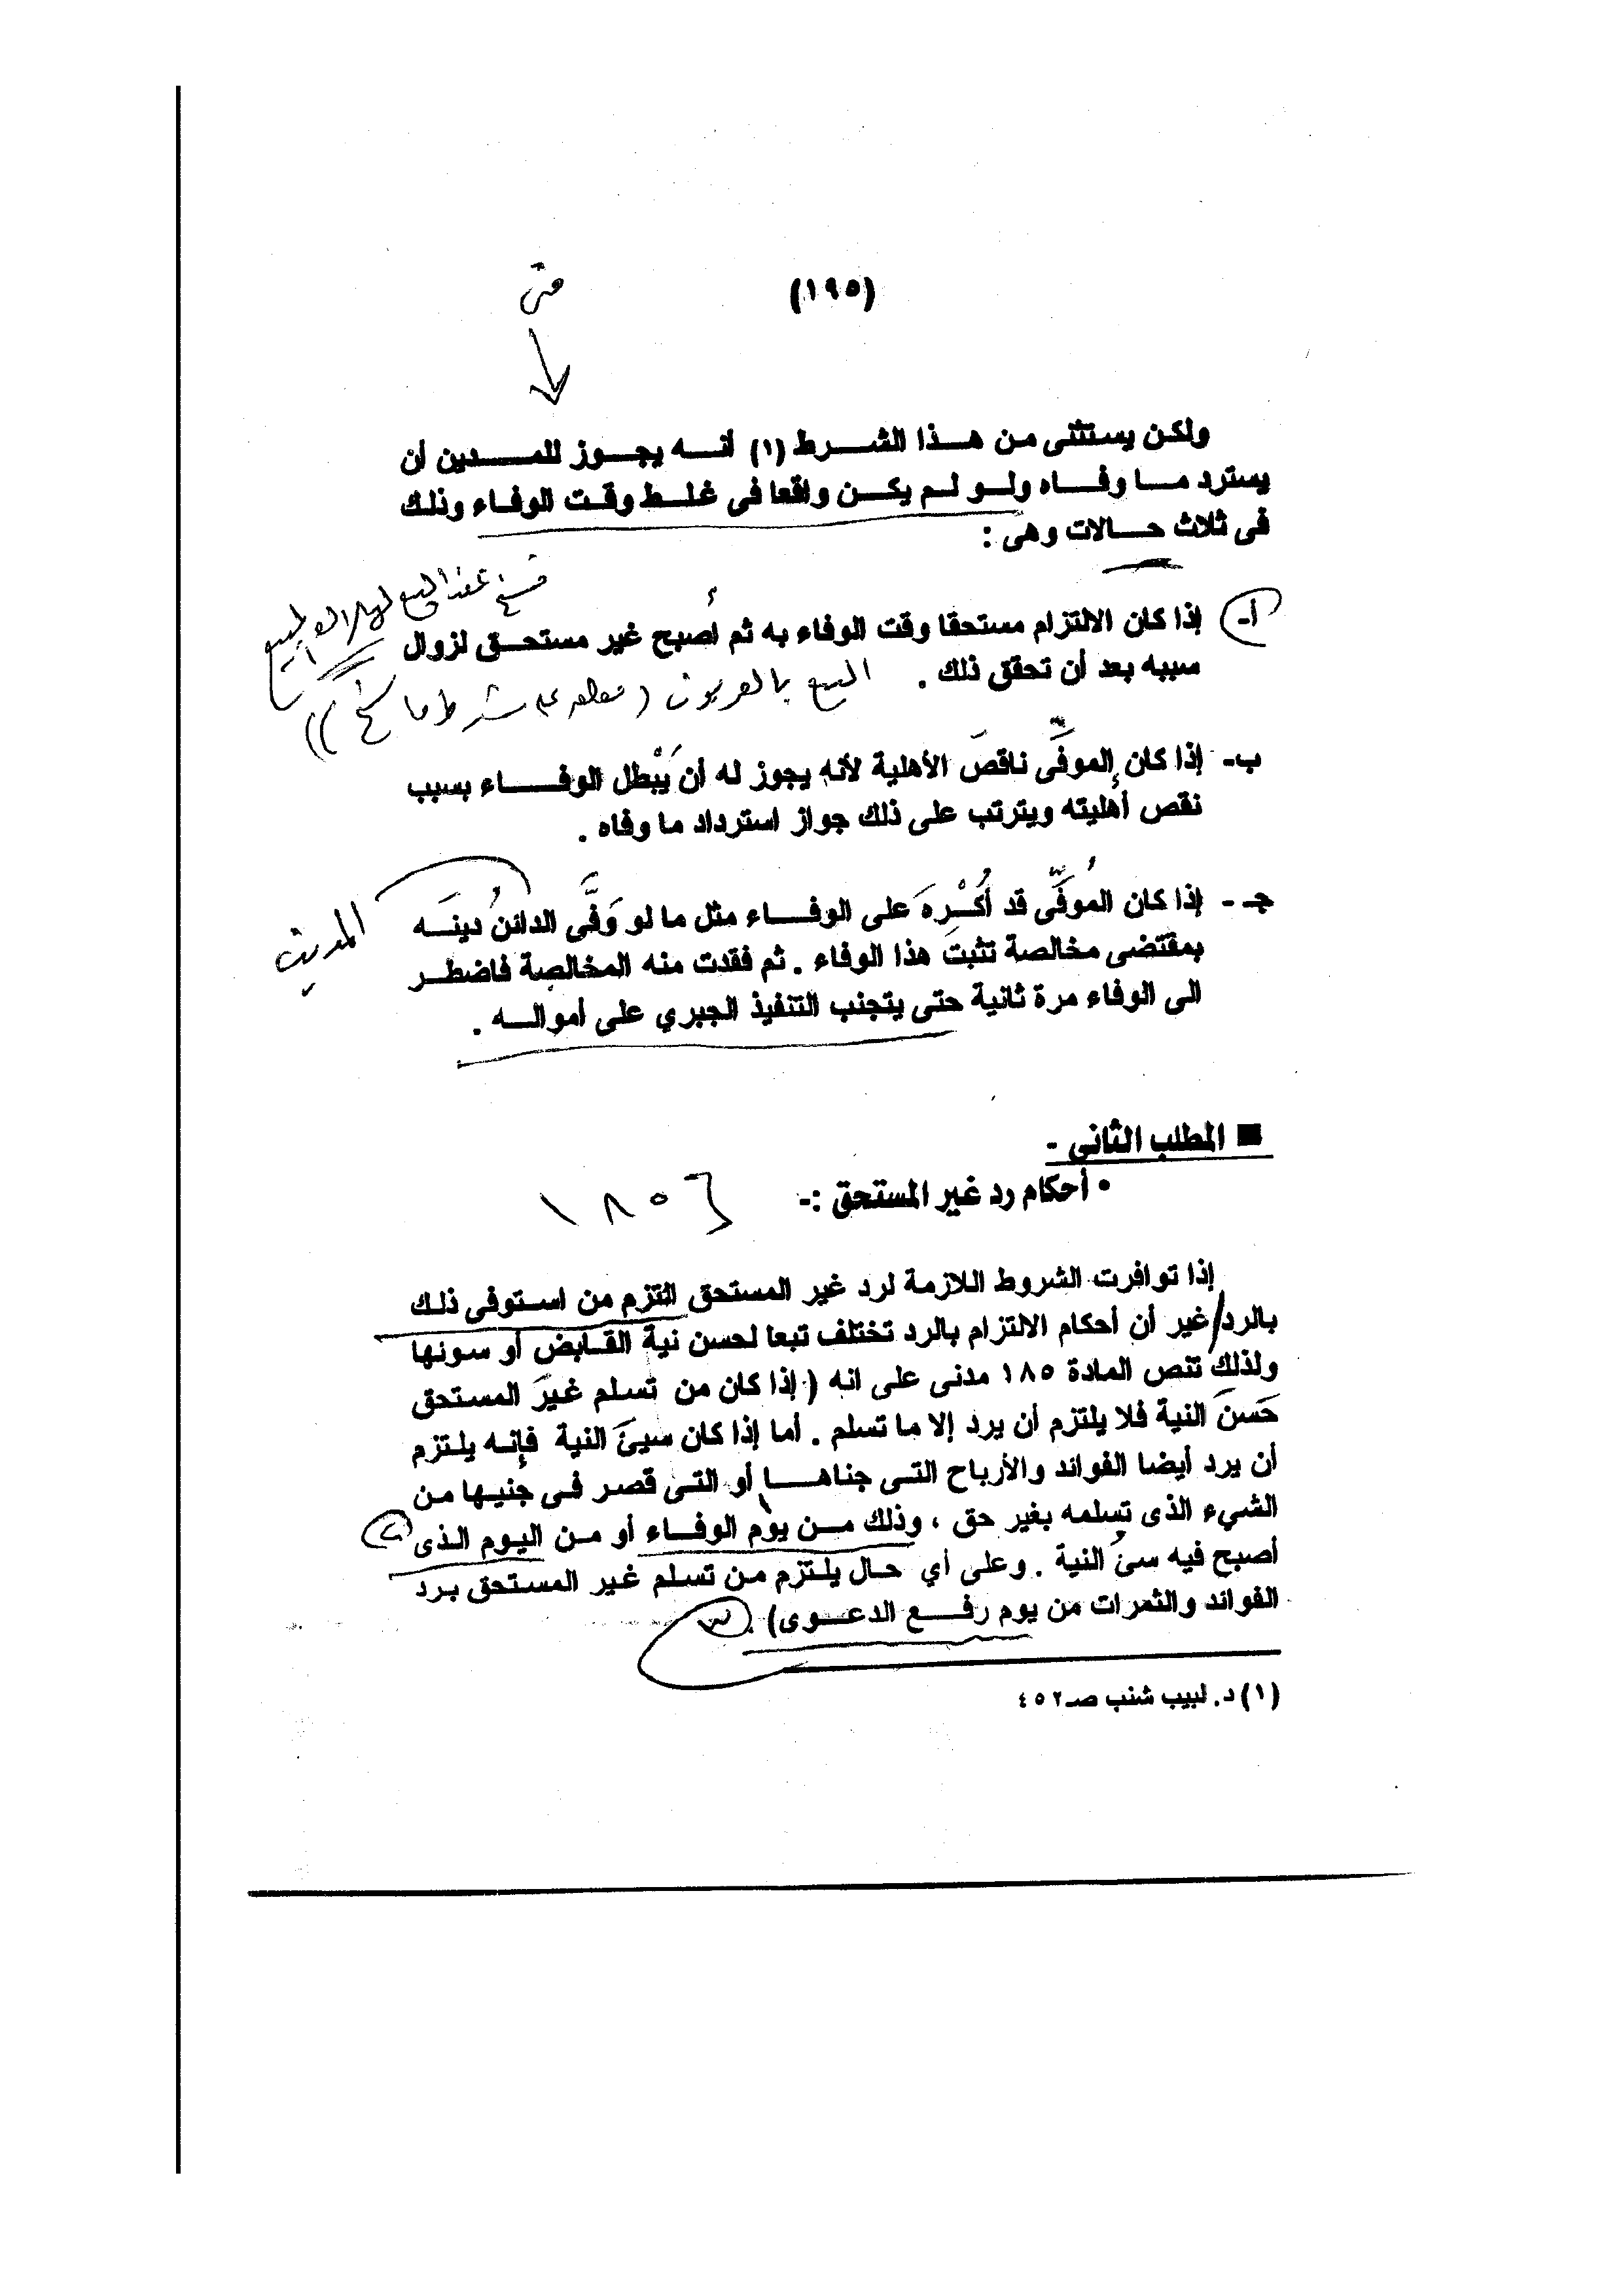 (١٩٥)
متى
ولكن يستثنى من هذا الشرط (١) أنه يجوز للمدين أن
يسترد ما وفاه ولو لم يكن واقعا فى غلط وقت الوفاء وذلك
فى ثلاث حالات وهى :
فسخ عقد البيع لهلاك المبيع
أ- إذا كان الالتزام مستحقا وقت الوفاء به ثم أصبح غير مستحق لزوال
سببه بعد أن تحقق ذلك .
البيع بالعربون (معلق على شرط فاسخ))
ب- إذا كان الموفِّى ناقصَ الأهلية لأنه يجوز له أن يَبْطل الوفاء بسبب
نقص أهليته ويترتب على ذلك جواز استرداد ما وفاه .
جـ - إذا كان المُوفِّى قد أُكْرِهَ على الوفاء مثل ما لو وَفَّى الدائنُ دينَه
المدين
بمقتضى مخالصة تثبت هذا الوفاء . ثم فقدت منه المخالصة فاضطر
الى الوفاء مرة ثانية حتى يتجنب التنفيذ الجبري على أمواله .
■ المطلب الثانى -
• أحكام رد غير المستحق :-
١٨٥ م
إذا توافرت الشروط اللازمة لرد غير المستحق التزم من استوفى ذلك
بالرد/غير أن أحكام الالتزام بالرد تختلف تبعا لحسن نية القابض أو سونها
ولذلك تنص المادة ١٨٥ مدنى على انه ( إذا كان من تسلم غيرَ المستحق
حَسَنَ النية فلا يلتزم أن يرد إلا ما تسلم . أما إذا كان سيئَ النية فإنه يلتزم
أن يرد أيضا الفوائد والأرباح التى جناها أو التى قصر فى جنيها من
الشيء الذى تسلمه بغير حق ، وذلك من يوم الوفاء أو من اليوم الذى
أصبح فيه سئ النية . وعلى أي حال يلتزم من تسلم غير المستحق برد
الفوائد والثمرات من يوم رفع الدعوى) . ٣
(١) د. لبيب شنب صـ٤٥٢